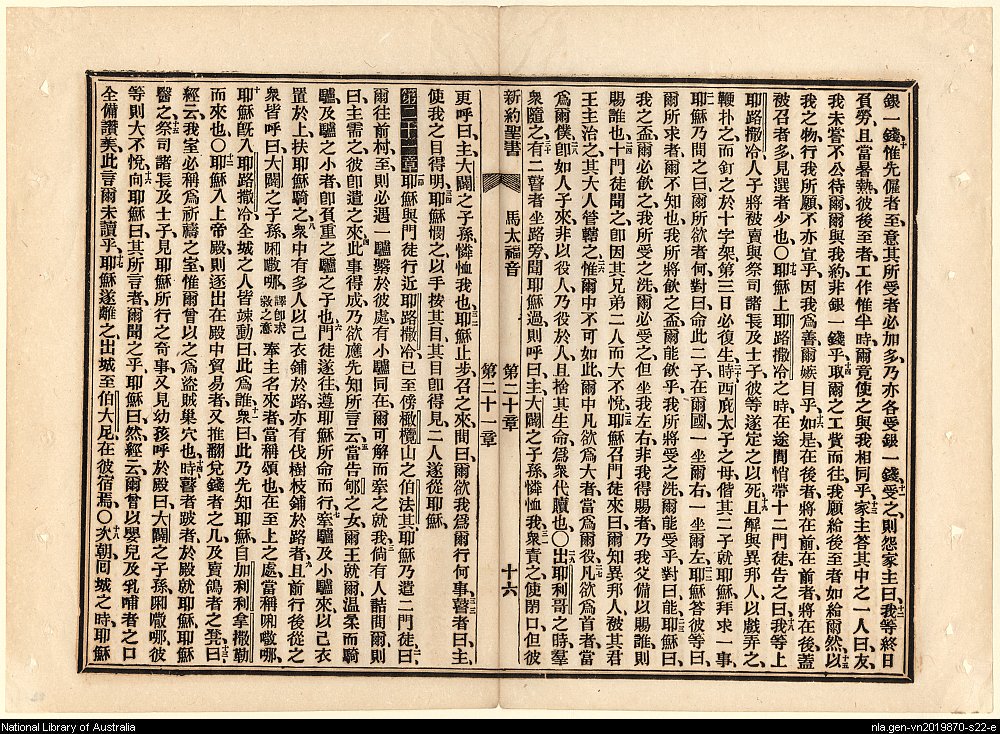 銀一錢惟先僱者至意其所受者必加多乃亦各受銀一錢十一受之則怨家主曰十二我等終日
負勞且當暑熱彼後至者工作惟半時爾竟使之與我相同乎十三家主答其中之一人曰友
我未嘗不公待爾爾與我約非銀一錢乎十四取爾之工貲而往我願給後至者如給爾然十五以
我之物行我所願不亦宜乎因我為善爾嫉目乎十六如是在後者將在前在前者將在後蓋
被召者多見選者少也〇十七耶穌上耶路撒冷之時在途間悄帶十二門徒告之曰十八我等上
耶路撒冷人子將被賣與祭司諸長及士子彼等遂定之以死十九且解與異邦人以戲弄之
鞭扑之而釘之於十字架第三日必復生二十時西庇太子之母偕其二子就耶穌拜求一事
二一耶穌乃問之曰爾所欲者何對曰命此二子在爾國一坐爾右一坐爾左二二耶穌答彼等曰
爾所求者爾不知也我所將飲之盃爾能飲乎我所將受之洗爾能受乎對曰能二三耶穌曰
我之盃爾必飲之我所受之洗爾必受之但坐我左右非我得賜者乃我父備以賜誰則
賜誰也二四十門徒聞之卽因其兄弟二人而大不悅二五耶穌召門徒來曰爾知異邦人被其君
王主治之其大人管轄之二六惟爾中不可如此爾中凡欲為大者當為爾役二七凡欲為首者當
為爾僕二八卽如人子來非以役人乃役於人且捨其生命為衆代贖也〇二九出耶利哥之時羣
衆隨之三十有二瞽者坐路旁聞耶穌過則呼曰主大闢之子孫憐恤我三一衆責之使閉口但彼
新約聖書 馬太福音 第二十章 第二十一章 十六
更呼曰主大闢之子孫憐恤我也三二耶穌止步召之來間曰爾欲我為爾行何事三三瞽者曰主
使我之目得明三四耶穌憫之以手按其目其目卽得見二人遂從耶穌
第二十一章 一耶穌與門徒行近耶路撒冷已至傍橄欖山之伯法其耶穌乃遣二門徒曰二
爾往前村至則必遇一驢繫於彼處有小驢同在爾可解而牽之就我三倘有人詰問爾則
曰主需之彼卽遣之來四此事得成乃欲應先知所言云五當告郇之女爾王就爾溫柔而騎
驢及驢之小者卽負重之驢之子也六門徒遂往遵耶穌所命而行七牽驢及小驢來以己衣
置於上扶耶穌騎之八衆中有多人以己衣鋪於路亦有伐樹枝鋪於路者九且前行後從之
衆皆呼曰大闢之子孫㖠㘔哪譯卽求救之意奉主名來者當稱頌也在至上之處當稱㖠㘔哪
十耶穌旣入耶路撒冷全城之人皆竦動曰此為誰十一衆曰此乃先知耶穌自加利利拿撒勒
而來也〇十二耶穌入上帝殿則逐出在殿中貿易者又推翻兌錢者之几及賣鴿者之凳十三曰
經云我室必稱為祈禱之室惟爾曾以之為盜賊巢穴也十四時瞽者跛者於殿就耶穌耶穌
醫之十五祭司諸長及士子見耶穌所行之奇事又見幼孩呼於殿曰大闢之子孫㖠㘔哪彼
等則大不悅十六向耶穌曰其所言者爾聞之乎耶穌曰然經云爾曾以嬰兒及乳哺者之口
全備讚美此言爾未讀乎十七耶穌遂離之出城至伯大尼在彼宿焉〇十八次朝囘城之時耶穌
National Library of Australia
nla.gen-vn2019870-s22-e